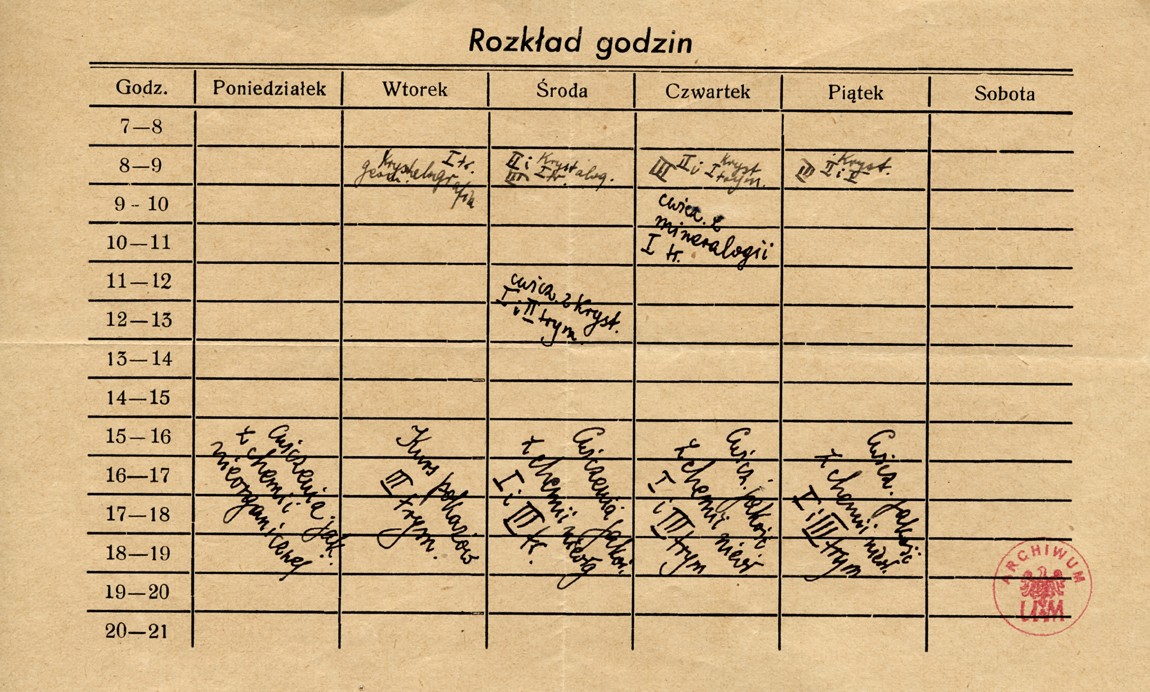 Rozkład godzin
Godz. Poniedziałek Wtorek Środa Czwartek Piątek Sobota
7—8
8—9
Krystalografia I tr.
geom.
II i Krystalog.
III I tr.
III II i I kryst. trym.
III Kryst.
II i I
9-10
10—11
ćwicz. z
mineralogii
I tr.
11—12
12—13
ćwicz. z Kryst.
I i II trym.
13—14
14—15
15—16
16—17
17—18
18—19
Ćwiczenia jak.
z chemii
nieorganicznej
Kurs pokazów
III trym.
Ćwiczenia jakoś.
z chemii nieorg
I i III tr.
Ćwicz. jakość.
z chemii nieor
I i III trym
Ćwicz. jakość
z chemii nieor.
I i III trym
19—20
20—21
ARCHIWUM
UAM